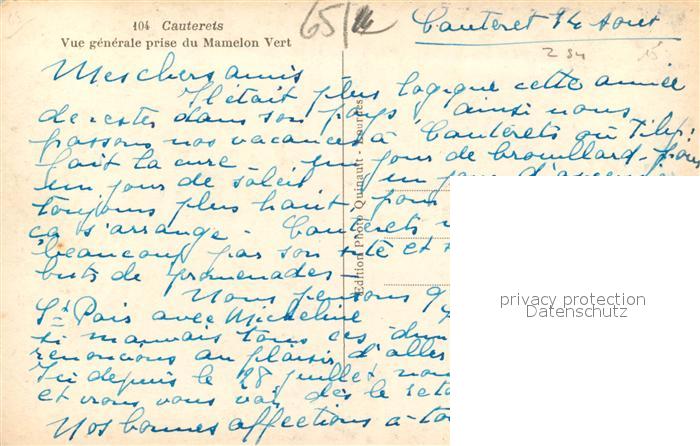 104 Cauterets
Vue générale prise du Mamelon Vert
65/
Cauteret 14 Aout
Mes chers amis
Il était plus logique cette année
de rester dans son pays ainsi nous
passons nos vacances à Cauterets où
fait la cure - un jour de brouillard - pour
un jour de soleil un jour
toujours plus haut pour
ça s'arrange - Cauterets
beaucoup par son site et
buts de promenades -
Nous pensons
St Pair avec Micheline
si mauvais tous ces
renoncons au plaisir d'aller
Ici depuis le 28 juillet nous
et vous voir dès le
Nos bonnes affections à
Edition Photo Quinault - Lourdes
privacy protection
Datenschutz